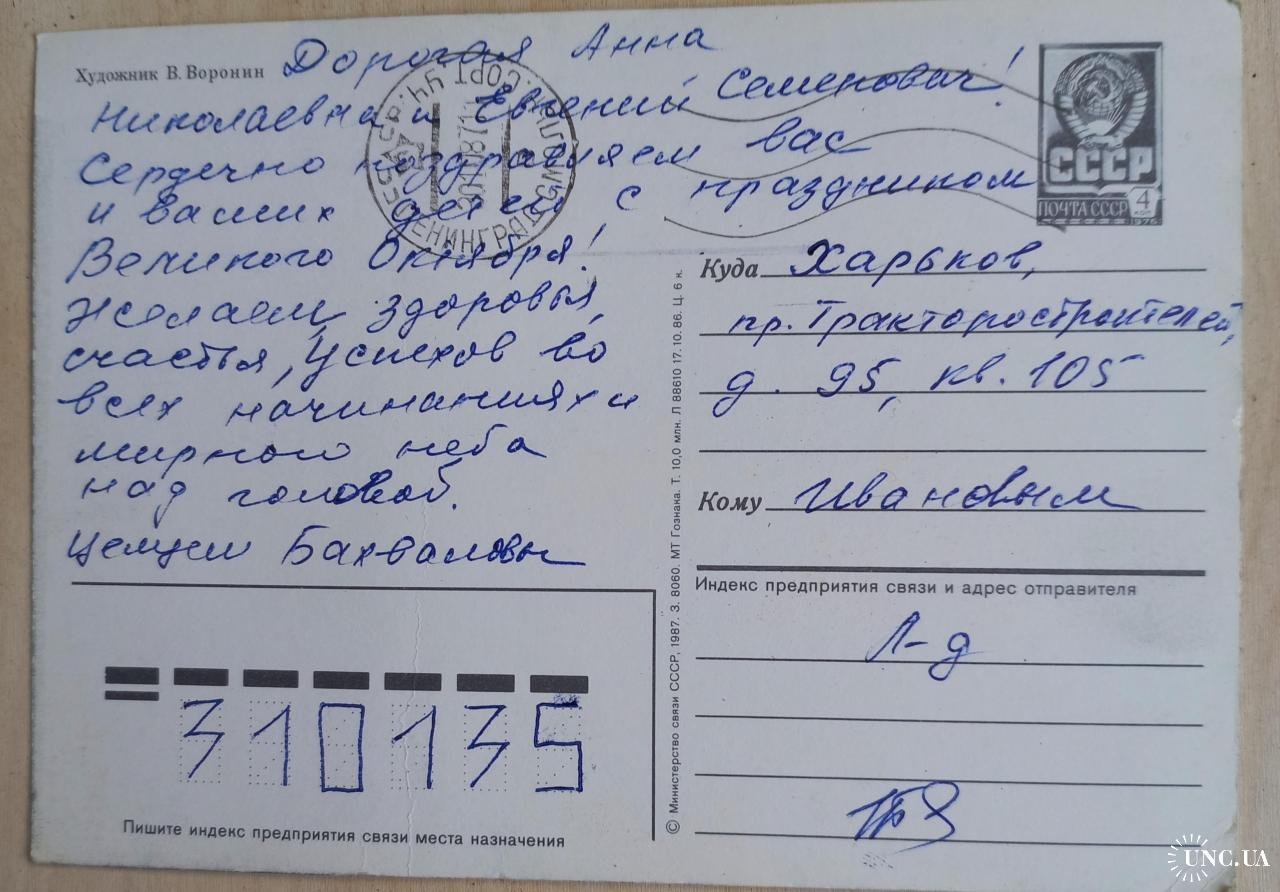 Художник В. Воронин
Дорогая Анна
Николаевна и Евгений Семенович!
Сердечно поздравляем вас
и ваших детей с праздником
Великого Октября!
Желаем здоровья,
счастья, успехов во
всех начинаниях и
мирного неба
над головой.
Целуем Бахваловы
СССР
ПОЧТА СССР
4
КОП
1976
ЛЕНИНГРАД
Куда Харьков,
пр. Тракторостроителей,
д. 95, кв. 105
Кому Ивановым
Индекс предприятия связи и адрес отправителя
Л-д
310135
Пишите индекс предприятия связи места назначения
© Министерство связи СССР, 1987. З. 8060. МТ Гознака. Т. 10,0 млн. Л 88610 17.10.86. Ц. 6 к.
UNC.UA